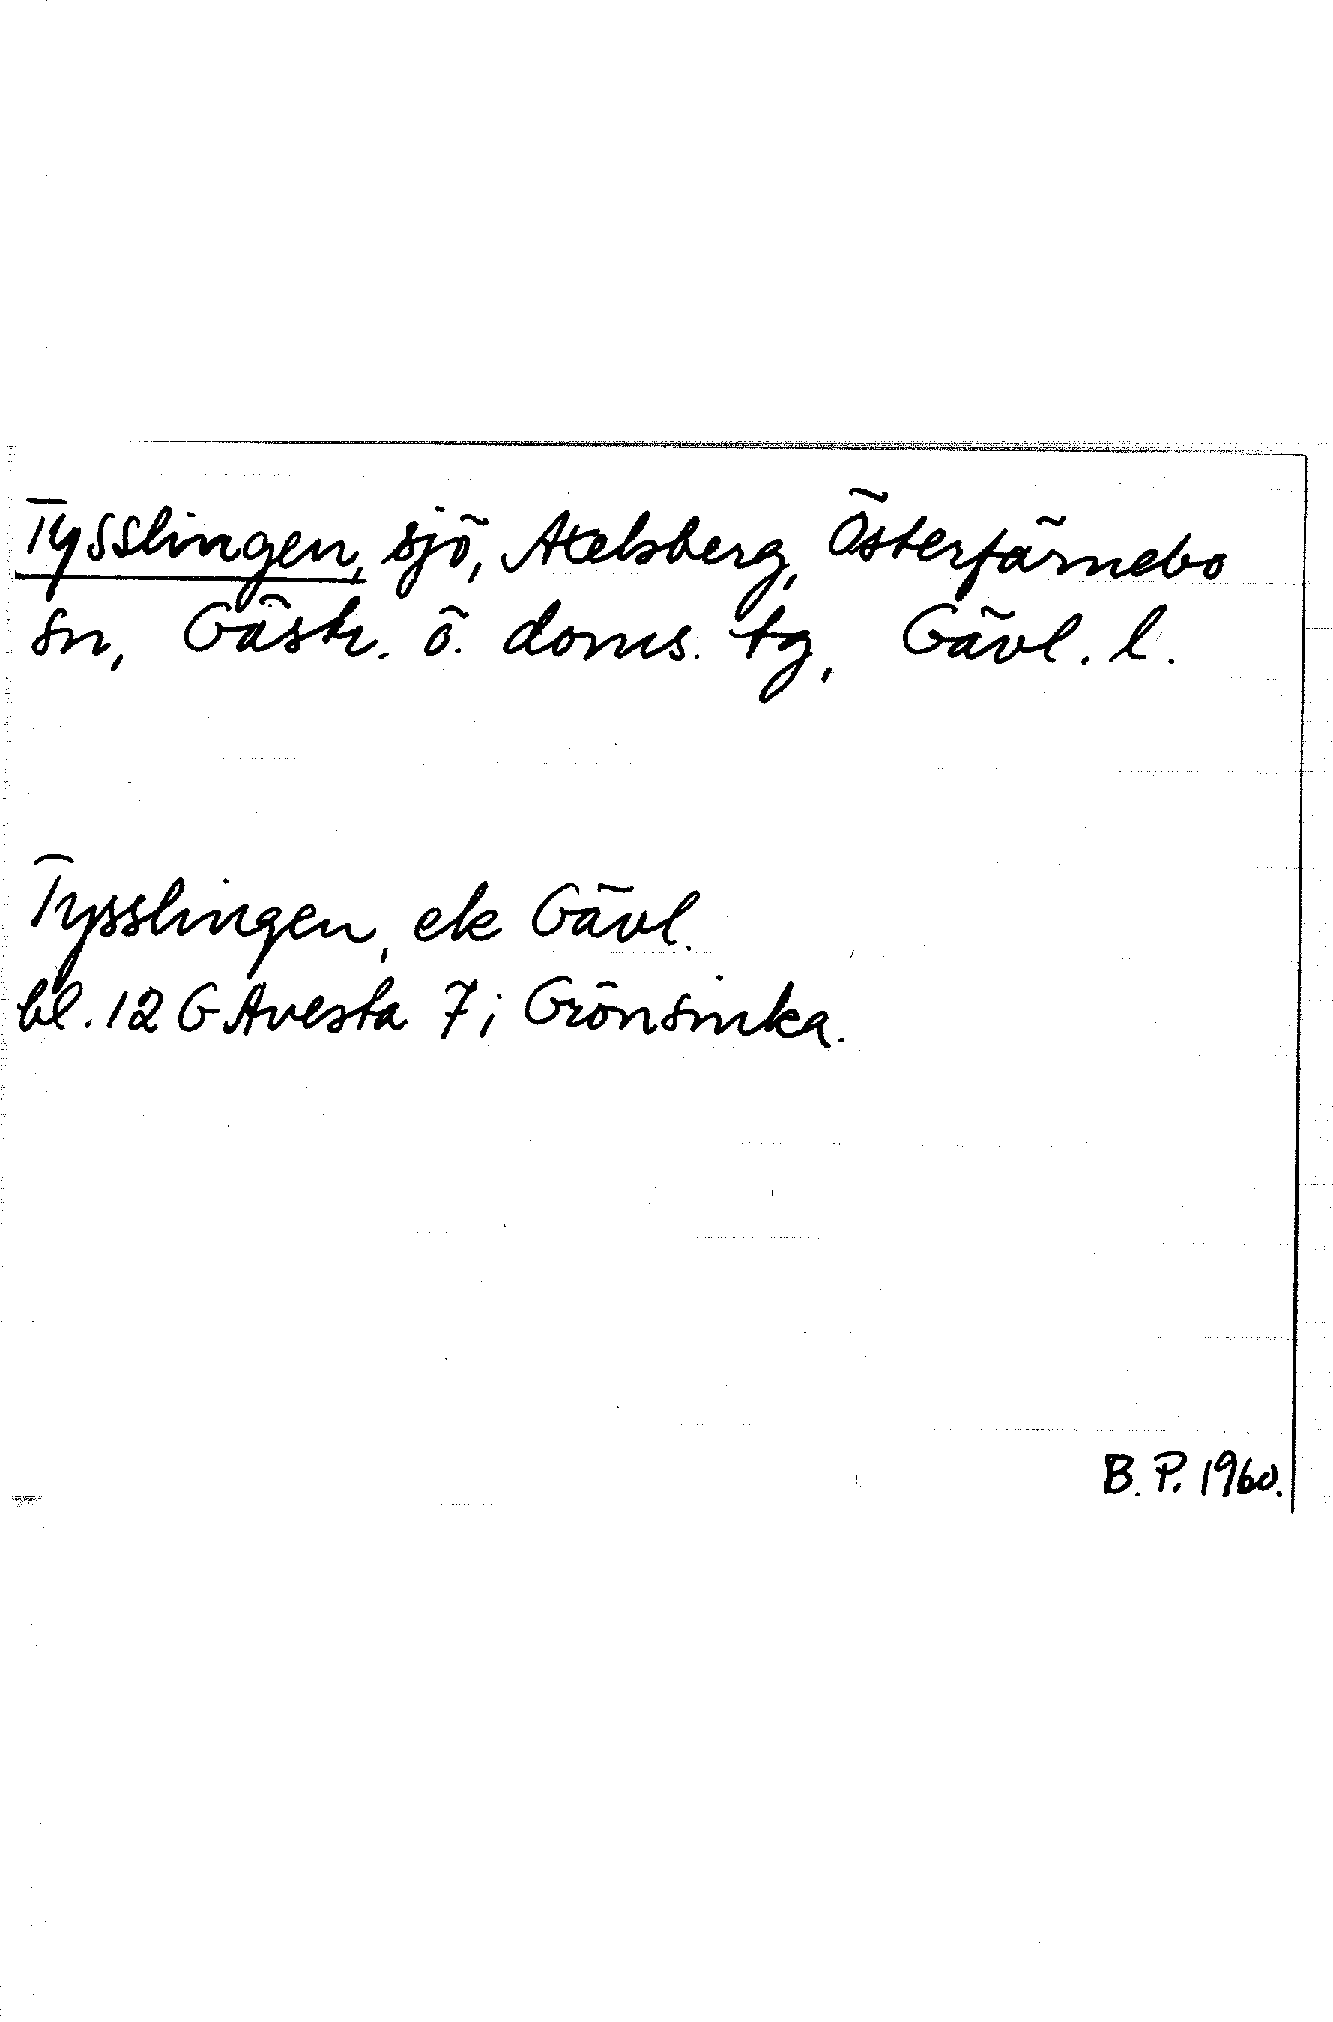 Tysslingen, sjö, Axelsberg, Österfärnebo
sn, Gästr. ö. doms. tg, Gävl. l.
Tysslingen, ek Gävl.
bl. 12 G Avesta 7 i Grönsinka.
B. P. 1960.